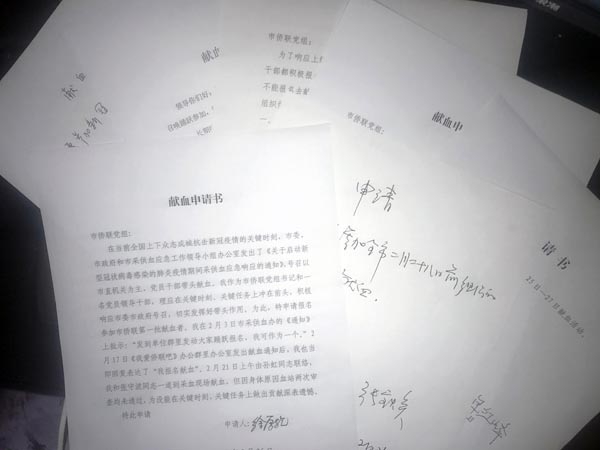 献血申请书
市侨联党组：
在当前全国上下众志成城抗击新冠疫情的关键时刻，市委、
市政府和市采供血应急工作领导小组办公室发出了《关于启动新
型冠状病毒感染的肺炎疫情期间采供血应急响应的通知》，号召以
市直机关为主，党员干部带头献血。我作为市侨联党组书记和一
名党员领导干部，理应在关键时刻、关键任务上冲在前头，积极
响应市委市政府号召，切实发挥好带头作用。为此，特申请报名
参加市侨联第一批献血者。我在2月3日市采供血办的《通知》
上批示："发到单位群里发动大家踊跃报名，我可作为一个。"2
月17日《我爱侨联吧》办公群里办公室发出献血通知后，我也当
即回复表达了"我报名献血"。2月21日上午由孙虹同志联络，
我和张守波同志一道到采血现场献血，但因身体原因血站两次审
查均未通过，为没能在关键时刻、关键任务上做出贡献深表遗憾。
特此申请
申请人：
献血
领导你们好：
召唤踊跃参加，
市侨联党组：
为了响应上
干部都积极报
不能报名金献
组织
一、
献血申
市侨联党组：
申请
参加全市二月二十八日前组织的
献血.
请书
25日—27日献血活动。